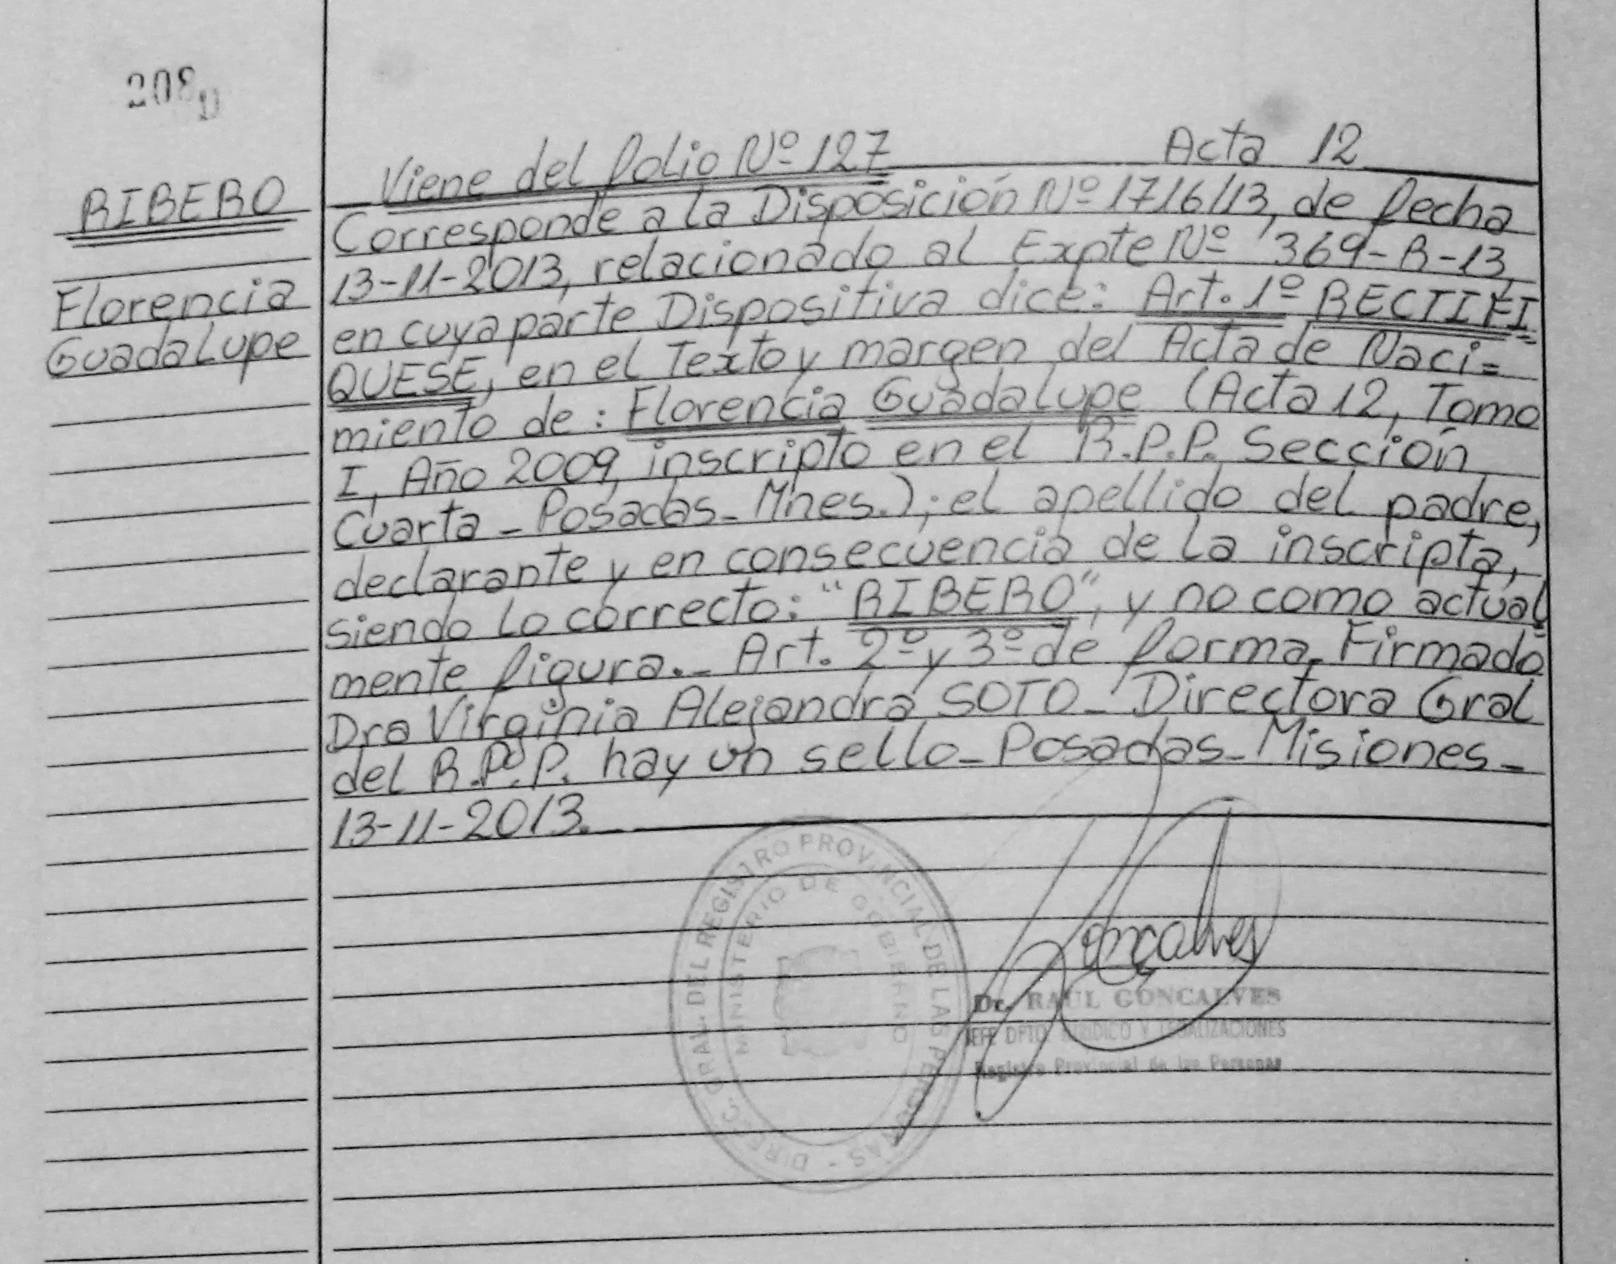 208 D
Viene del folio Nº 127 Acta 12
RIBERO
Florencia
Guadalupe
Corresponde a la Disposición Nº 1716/13, de fecha
13-11-2013, relacionado al Expte Nº 369-R-13,
en cuya parte Dispositiva dice: Art. 1º RECTIFI
QUESE, en el Texto y margen del Acta de Naci=
miento de: Florencia Guadalupe (Acta 12, Tomo
I, Año 2009, inscripto en el R.P.P. Sección
Cuarta - Posadas - Mnes.); el apellido del padre,
declarante y en consecuencia de la inscripta,
siendo lo correcto: "RIBERO", y no como actual
mente figura.- Art. 2º y 3º de forma. Firmado
Dra Virginia Alejandra SOTO - Directora Gral
del R.P.P. hay un sello - Posadas - Misiones -
13-11-2013.-
DIREC. GRAL. DEL REGISTRO PROVINCIAL DE LAS PERSONAS -
MINISTERIO DE GOBIERNO
Goncalves
Dr. RAUL GONCALVES
JEFE DPTO. JURIDICO Y LEGALIZACIONES
Registro Provincial de las Personas